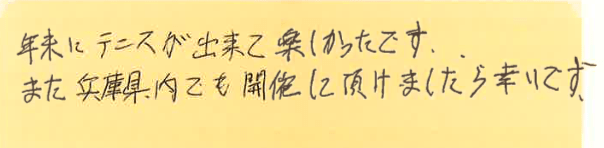 年末にテニスが出来て楽しかったです.
また兵庫県内でも開催して頂けましたら幸いです.